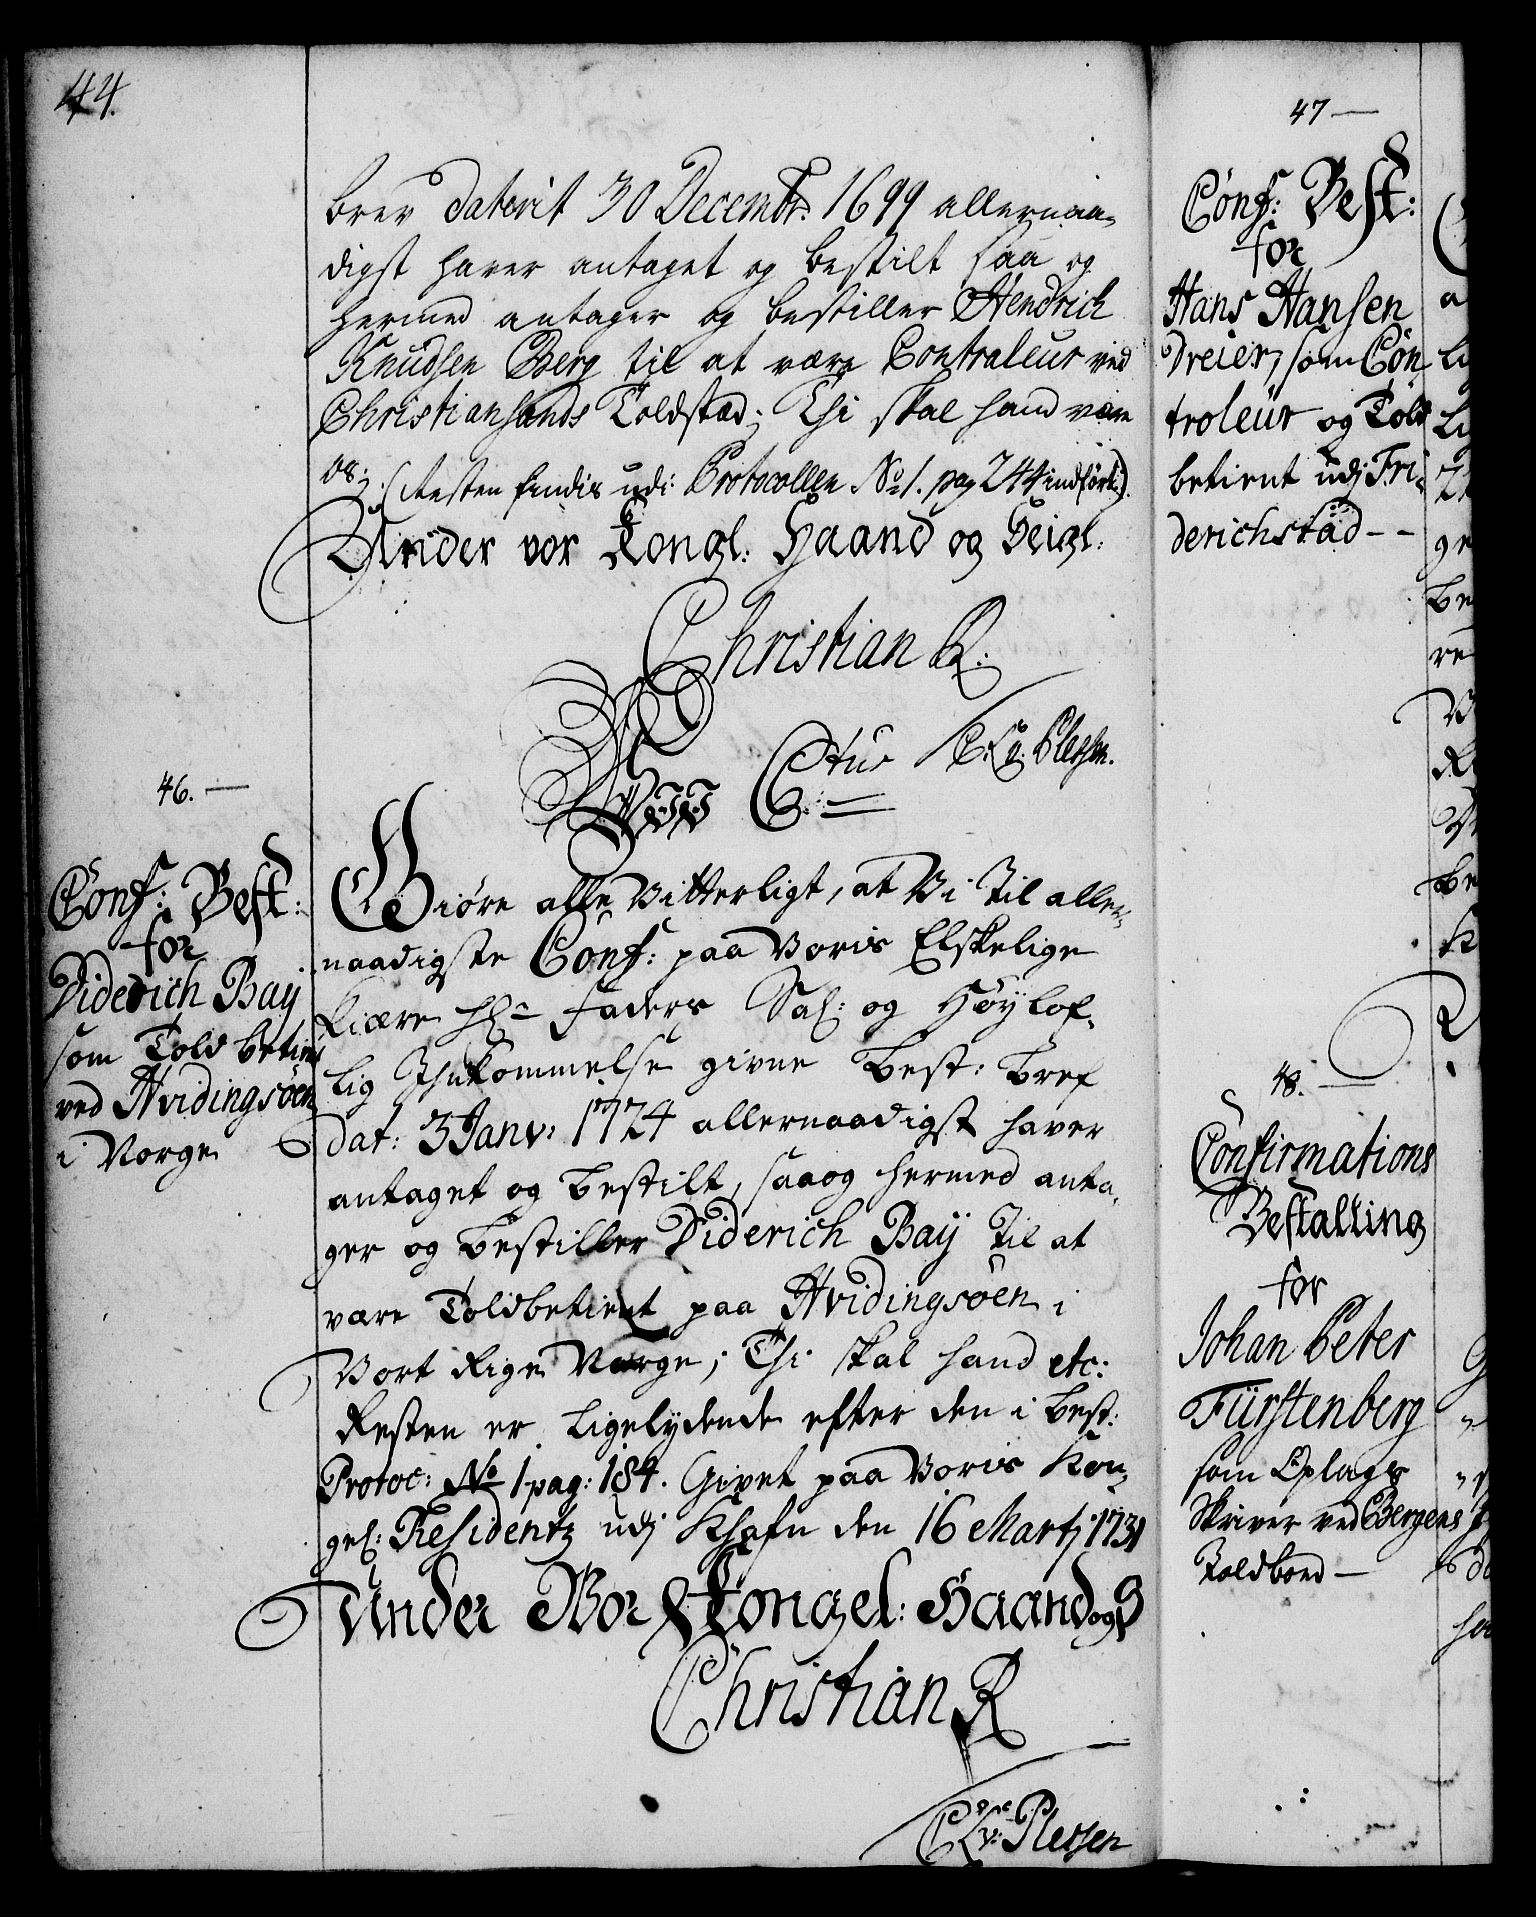 44.
brev daterit 30 Decembr. 1699 allernaa-
digst haver antaget og bestilt saa og
hermed antager og bestiller Hendrich
Knudsen Berg til at være Contraleur ved
Christiansands Toldsted; Thi skal hand være
os; (Resten findis udi Protocollen No 1. pag 244 indført:)
Under vor Kongl: Haand og Seigl:
Christian R.
C: A: v: Plessen.
46.
Conf: Best:
for
Diderich Bay
som Toldbetient
ved Hvidingsöen
i Norge
Wii Ctus
6.
Giöre alle Vitterligt, at Vi Til aller-
naadigste Conf: paa Voris Elskelige
Kiære Hr Faders Sal: og Höylof-
lig Ihukommelse givne Best: Bref
dat: 3 Janv: 1724 allernaadigst haver
antaget og bestilt, saa og hermed anta-
ger og bestiller Diderich Bay Til at
være Toldbetient paa Hvidingsöen i
Vort Rige Norge; Thi skal hand etc:
Resten er ligelydende efter den i Best:
Protoc: No 1 pag: 184. Givet paa Voris Kon-
gel: Residentz udj Khafn den 16 Martj 1731
Under Vor Kongel: Haand og S
Christian R
C A v: Plessen
47
Conf: Best:
for
Hans Hansen
Dreier, som Con
troleur og Told
betient udj Fri-
derichstad - -
48.
Confirmations
Bestalling
for
Johan Peter
Fürstenberg
som Oplags
Skriver ved Bergens
Toldbod